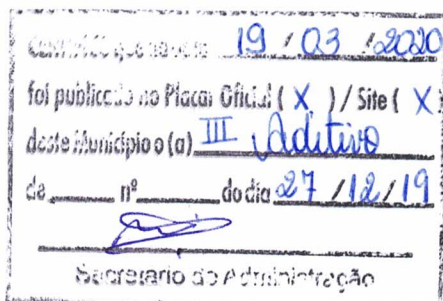 que na data 19 / 03 / 2020
foi publicado no Placar Oficial ( X ) / Site ( X )
deste Município o (a) III Aditivo
de ______ nº ______ do dia 27 / 12 / 19
Secretario de Administração